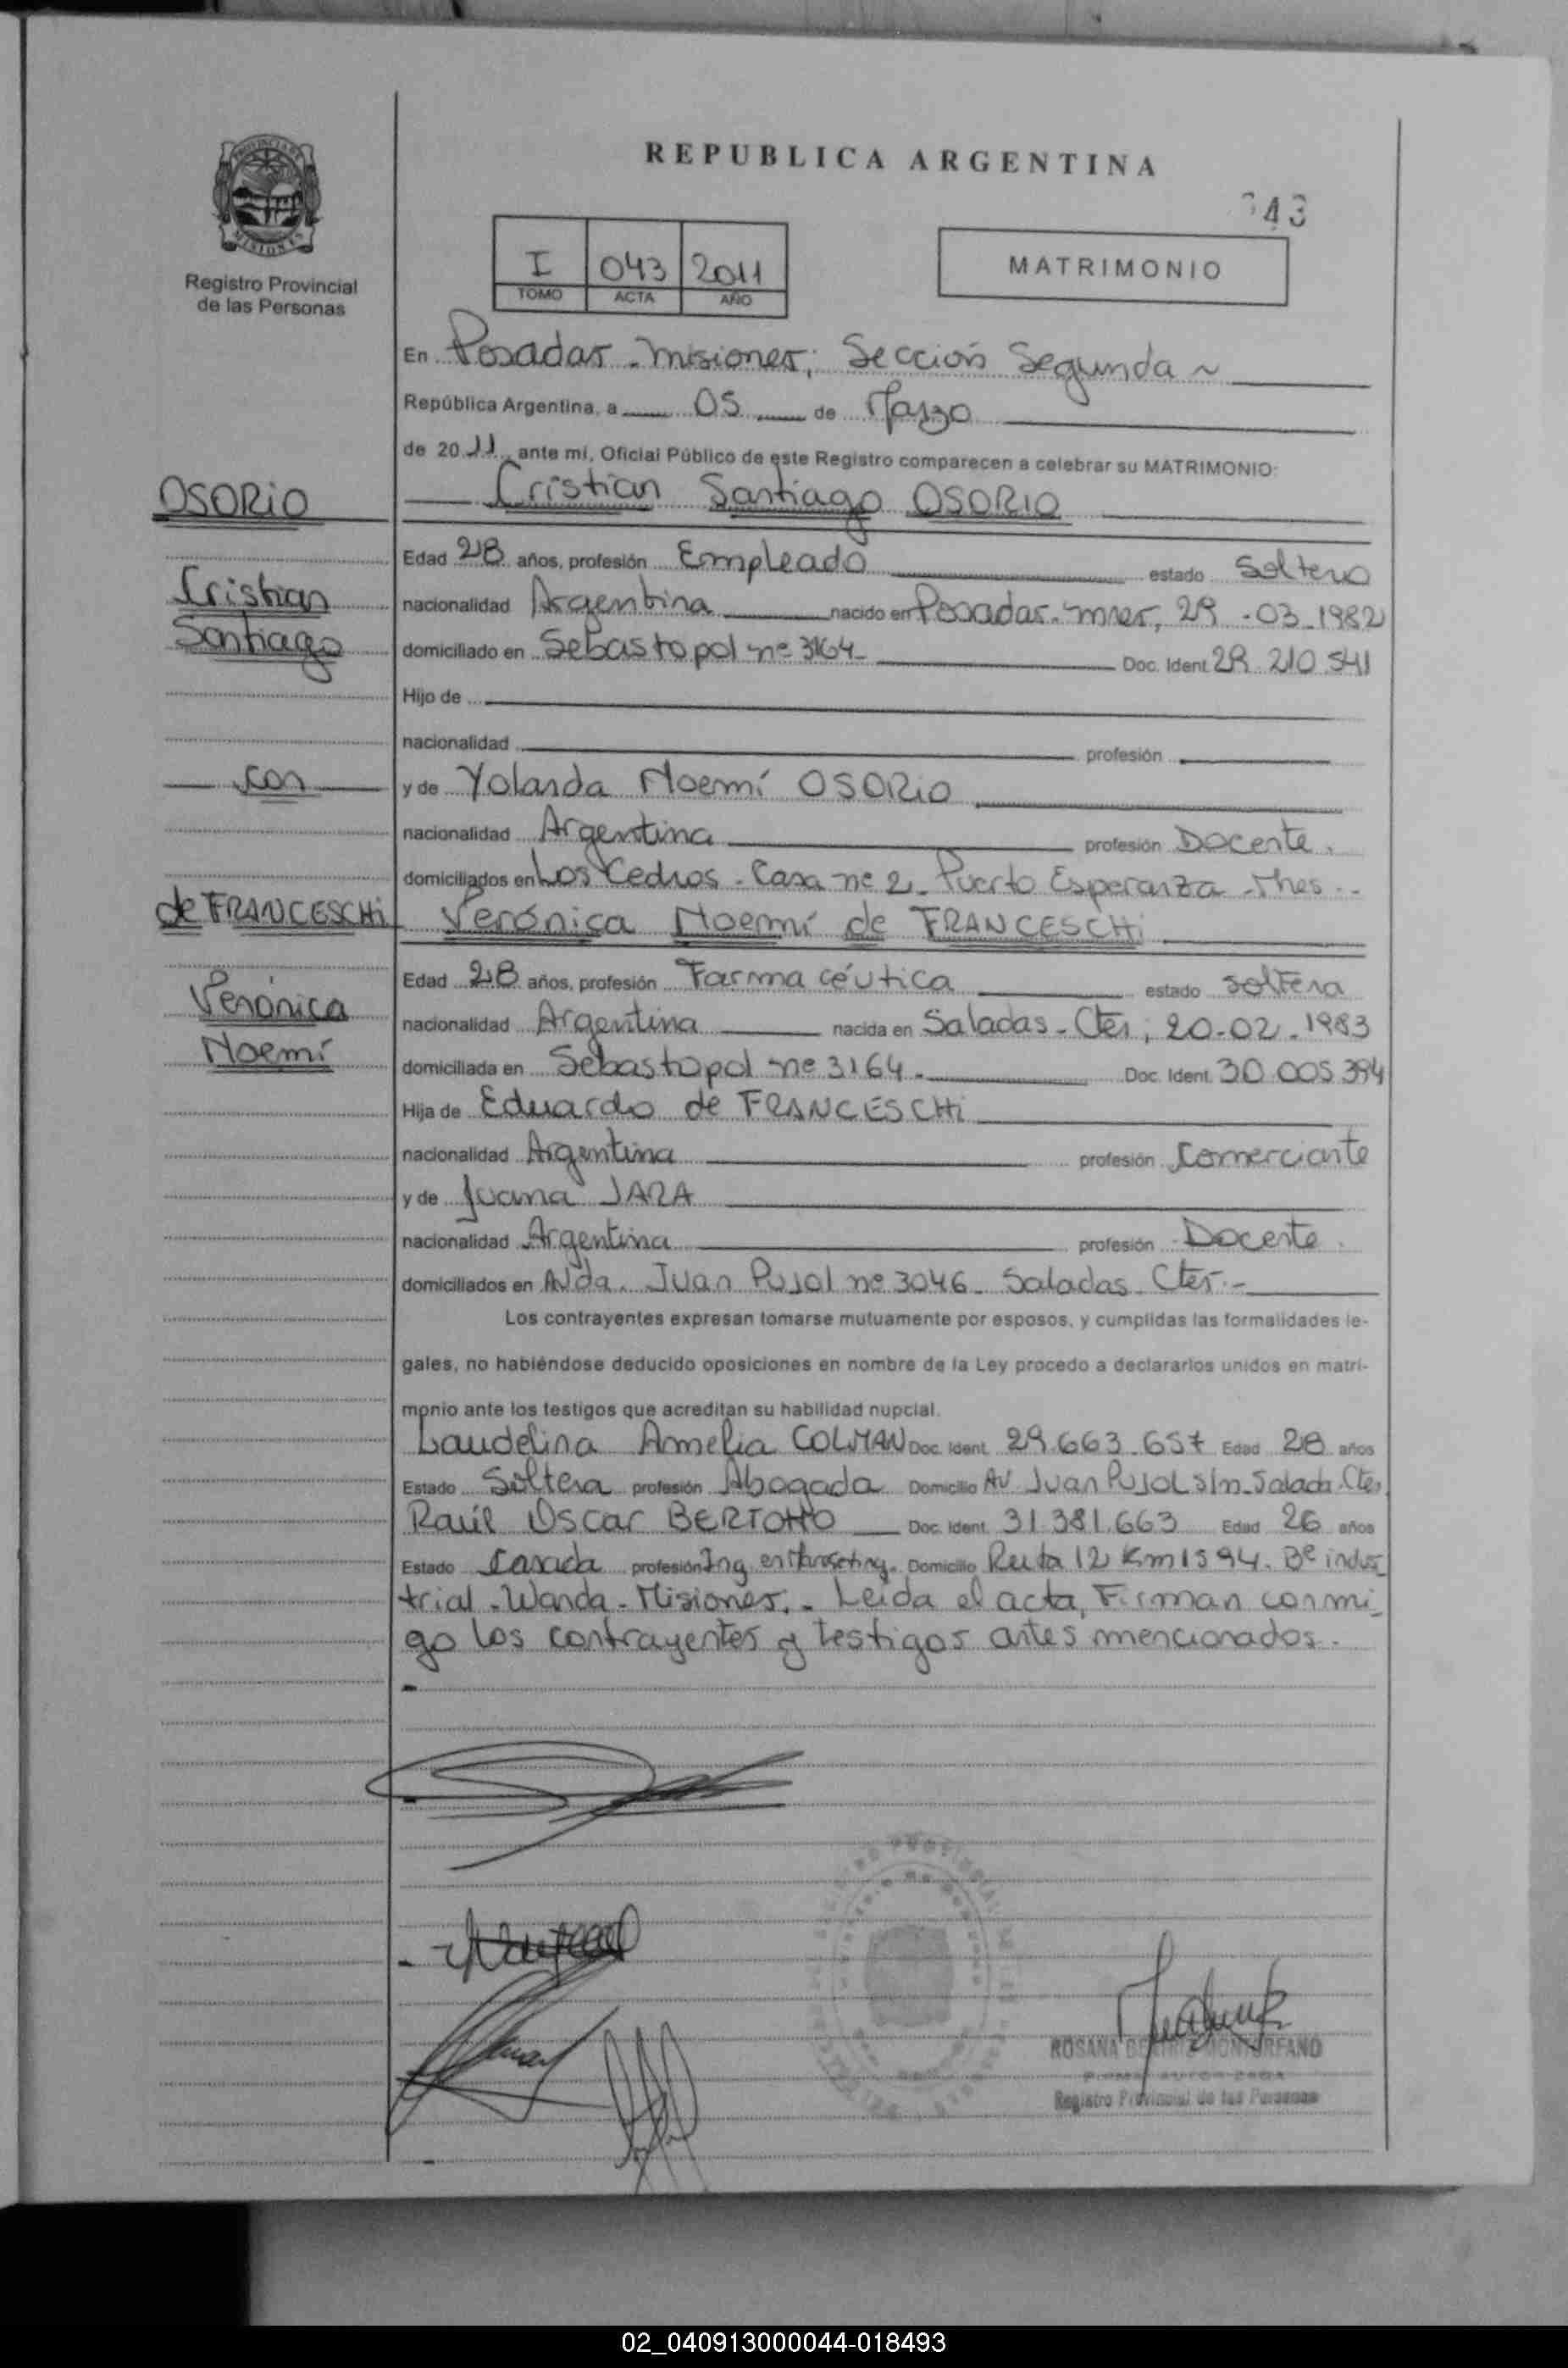 REPUBLICA ARGENTINA
43
PROVINCIA DE
MISIONES
Registro Provincial
de las Personas
I 043 2011
TOMO ACTA AÑO
MATRIMONIO
En Posadas - Misiones; Sección Segunda ~
República Argentina, a 05 de Marzo
de 2011, ante mí, Oficial Público de este Registro comparecen a celebrar su MATRIMONIO:
OSORIO Cristian Santiago OSORIO
Edad 28 años, profesión Empleado estado Soltero
Cristian nacionalidad Argentina nacido en Posadas - Mnes, 29 -03-1982
Santiago domiciliado en Sebastopol nº 3164 - Doc. Ident. 29.210.541
Hijo de
nacionalidad profesión
con y de Yolanda Noemí OSORIO
nacionalidad Argentina profesión Docente.
domiciliados en Los Cedros - Casa nº 2 - Puerto Esperanza - Mnes.-
de FRANCESCHi Verónica Noemí de FRANCESCHi
Edad 28 años, profesión Farmacéutica estado soltera
Verónica nacionalidad Argentina nacida en Saladas - Ctes; 20-02-1983
Noemí domiciliada en Sebastopol nº 3164 - Doc. Ident. 30.005.394
Hija de Eduardo de FRANCESCHi
nacionalidad Argentina profesión Comerciante
y de Juana JARA
nacionalidad Argentina profesión Docente.
domiciliados en Avda. Juan Pujol nº 3046 - Saladas - Ctes.-
Los contrayentes expresan tomarse mutuamente por esposos, y cumplidas las formalidades le-
gales, no habiéndose deducido oposiciones en nombre de la Ley procedo a declararlos unidos en matri-
monio ante los testigos que acreditan su habilidad nupcial.
Laudelina Amelia COLMAN Doc. Ident. 29.663.657 Edad 28 años
Estado Soltera profesión Abogada Domicilio AV. Juan PUJOL s/n - Salada - Ctes.
Raúl Oscar BERTOTTO Doc. Ident. 31.381.663 Edad 26 años
Estado Casada profesión Ing. en Marketing. Domicilio Ruta 12 Km 1594. Bº indus_
trial - Wanda - Misiones. - Leída el acta, Firman conmi_
go los contrayentes y testigos antes mencionados.
ROSANA BEATRIZ MONTORFANO
FIRMA AUTORIZADA
Registro Provincial de las Personas
02_040913000044-018493